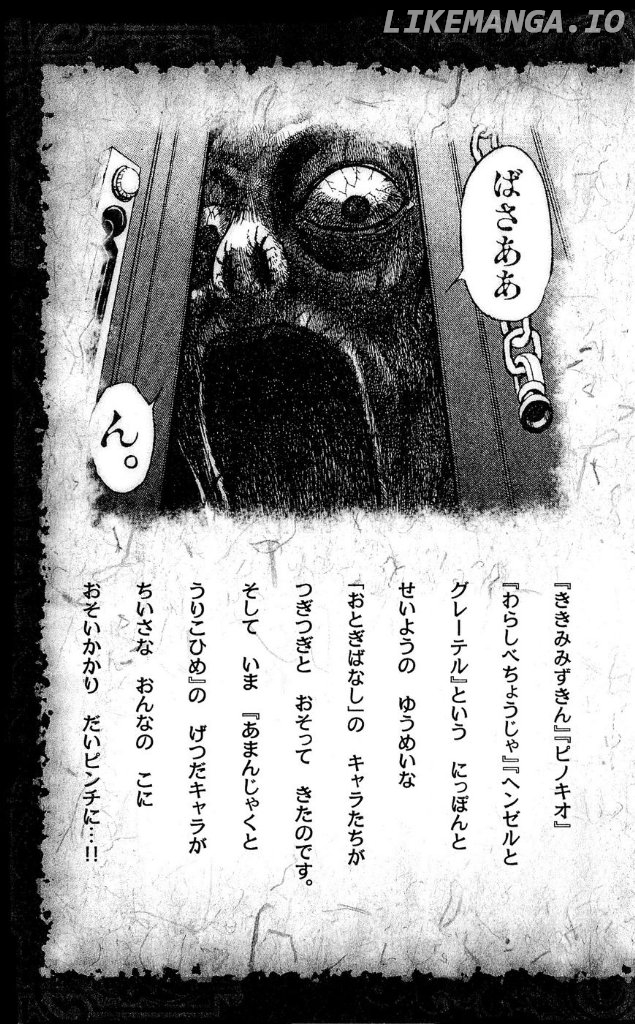 LIKEMANGA.IO
ばさああ
ん。
『ききみみずきん』『ピノキオ』
『わらしべちょうじゃ』『ヘンゼルと
グレーテル』という にっぽんと
せいようの ゆうめいな
「おとぎばなし」の キャラたちが
つぎつぎと おそって きたのです。
そして いま 『あまんじゃくと
うりこひめ』の げつだキャラが
ちいさな おんなの こに
おそいかかり だいピンチに…!!